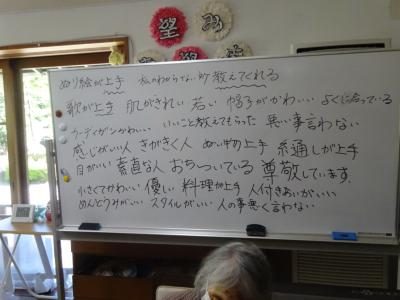 望み
ぬり絵が上手 私のわからない事教えてくれる
歌が上手 肌がきれい 若い 帽子がかわいい よくに合っている
カーディガンかわいい いいこと教えてもらった 悪い事言わない
感じがいい人 きがきく人 ぬいものが上手 糸通しが上手
目がいい 素直な人 おちついている 尊敬しています。
小さくてかわいい 優しい 料理が上手 人付きあいがいい
めんどうみがいい スタイルがいい 人の事悪く言わない